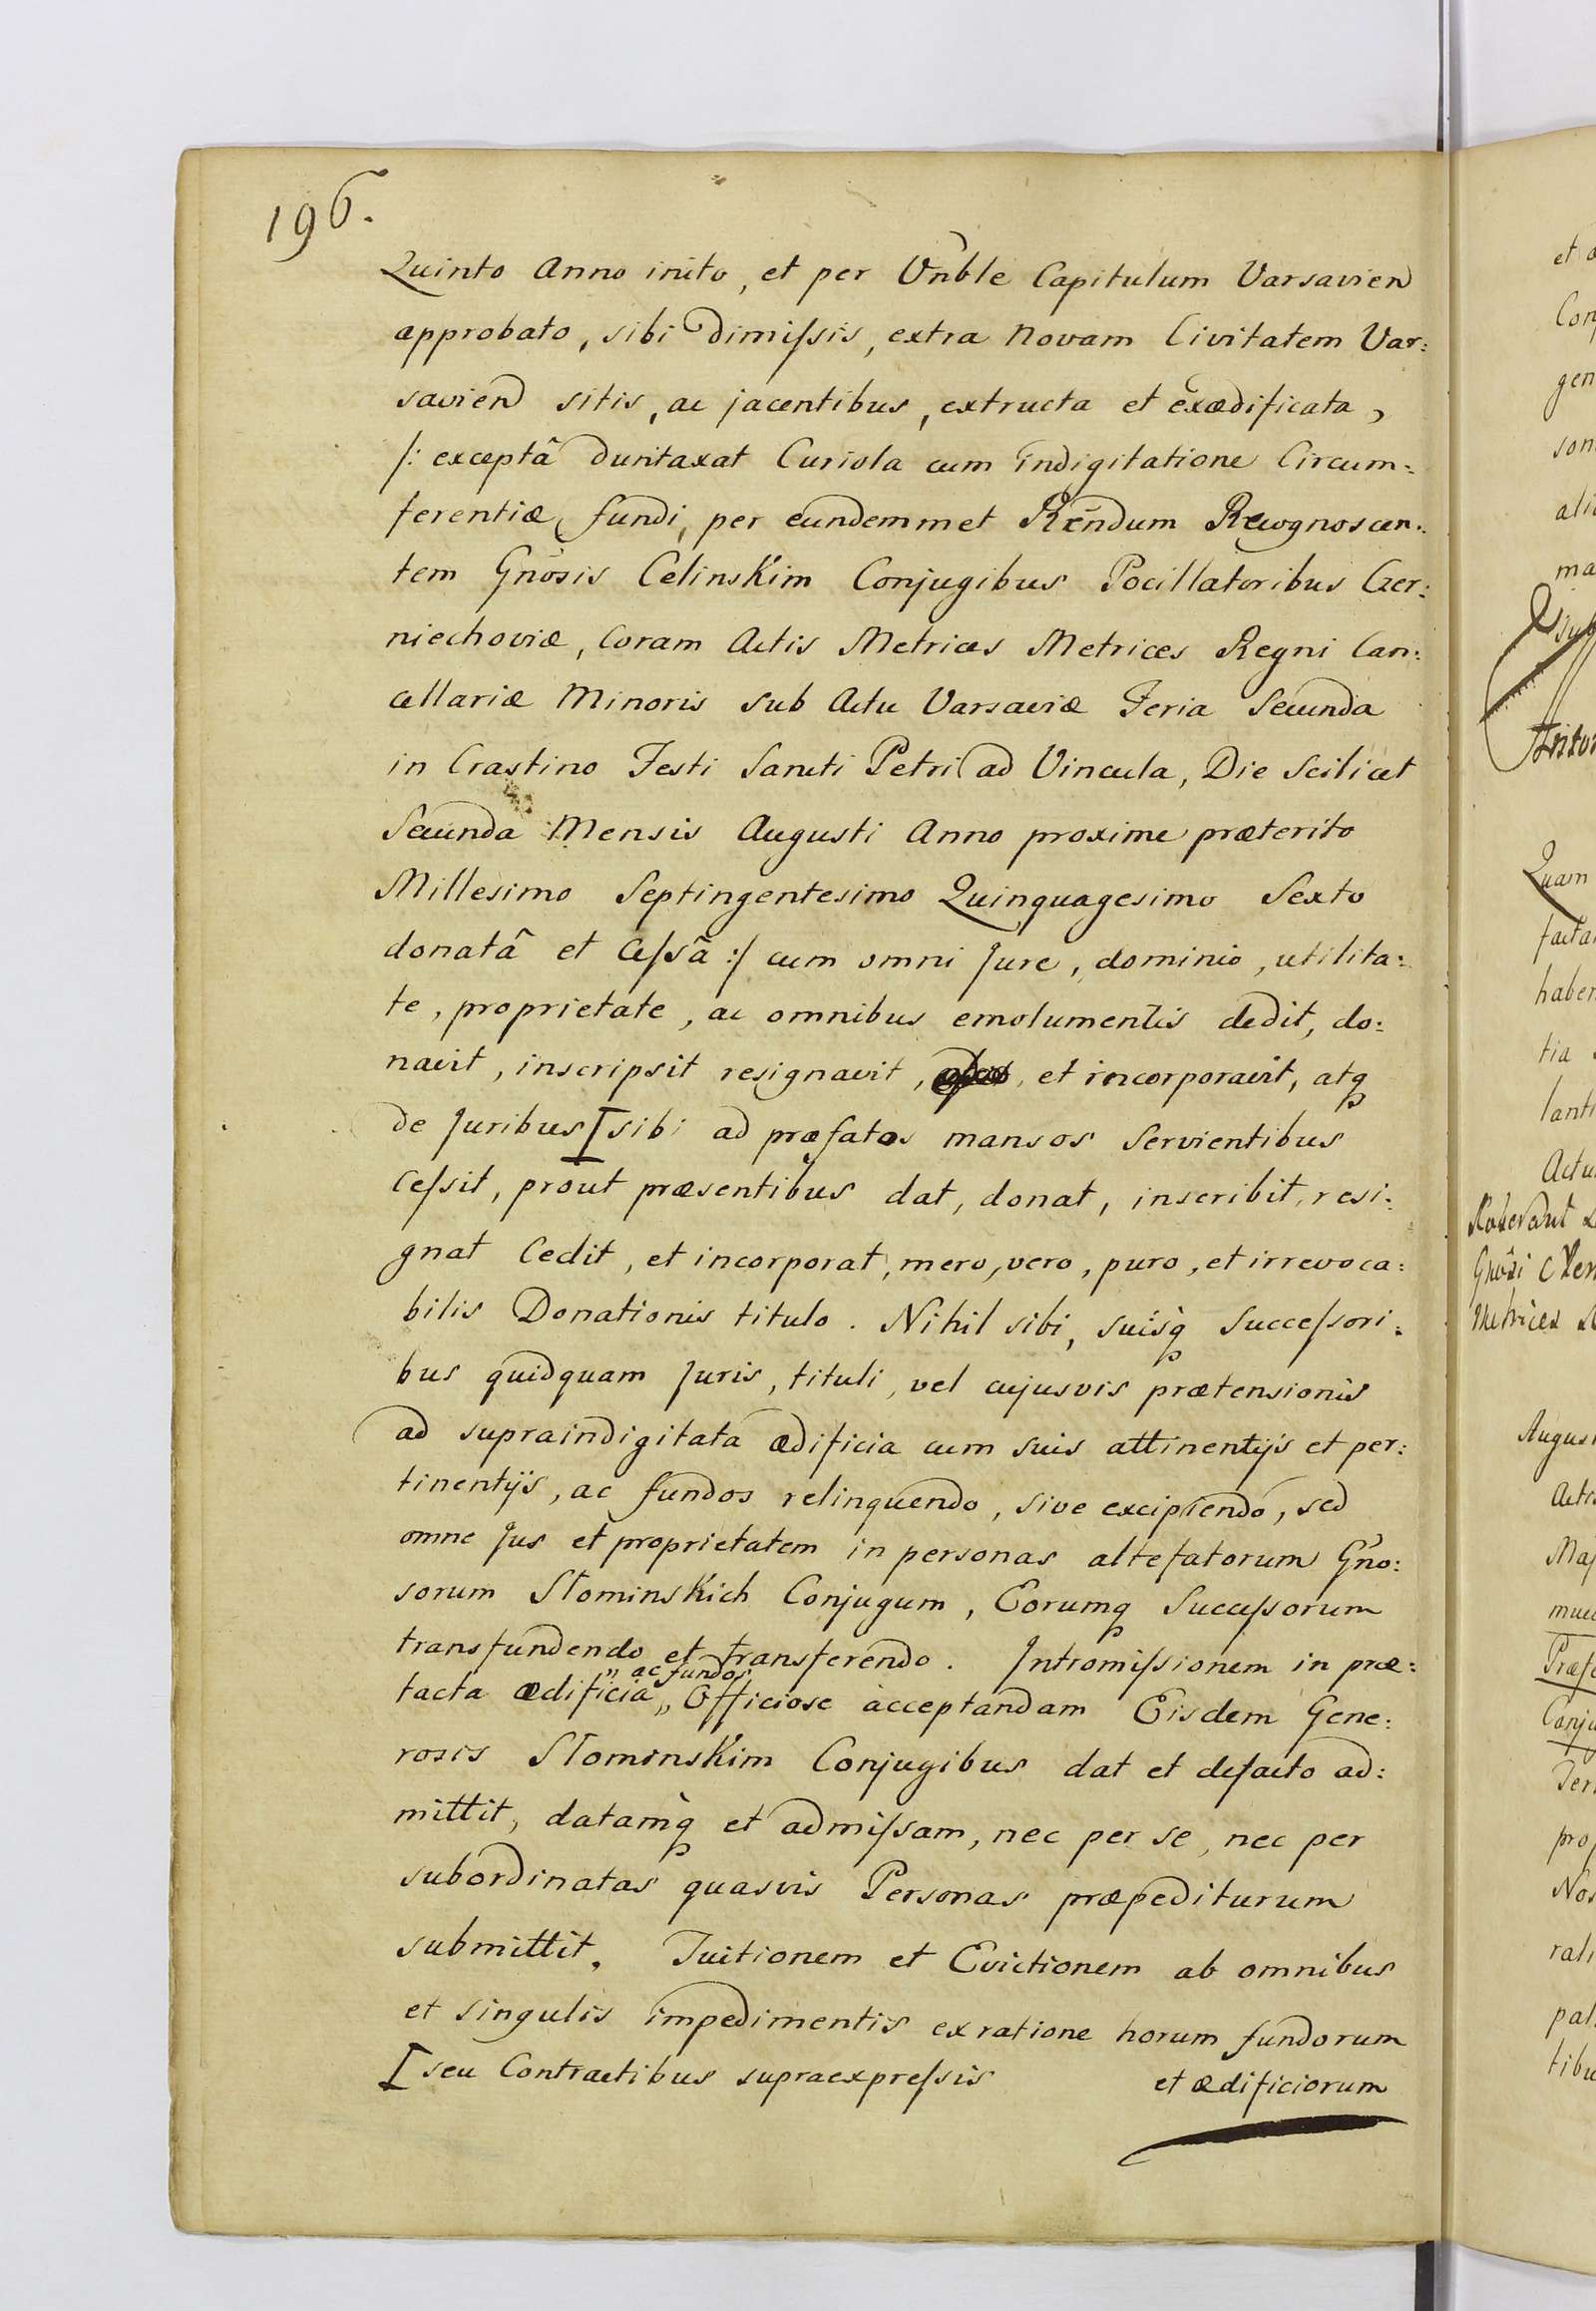 196.
Quinto Anno inito, et per Vn̄ble Capitulum Varsavien
approbato, sibi dimiſsis, extra Novam Civitatem Var:
savien sitis, ac jacentibus, extructa et exædificata,
/: exceptâ duntaxat Curiola cum indigitatione Circum:
ferentiæ fundi, per eundemmet Rēndum Recognoscen:
tem Gn̄osis Celinskim Conjugibus Pocillatoribus Czer:
niechoviæ, Coram Actis Metrices Metrices Regni Can:
cellariæ Minoris sub Actu Varsaviæ Feria Secunda
in Crastino Festi Sancti Petri ad Vincula, Die Scilicet
Secunda Mensis Augusti Anno proxime præterito
Millesimo Septingentesimo Quinquagesimo Sexto
donatâ et Ceſsâ :/ cum omni Jure, dominio, utilita:
te, proprietate, ac omnibus emolumentis dedit, do:
navit, inscripsit resignavit, et incorporavit, atq
de Juribus [ sibi ad præfatos mansos Servientibus
Ceſsit, prout præsentibus dat, donat, inscribit, resi:
gnat Cedit, et incorporat, mero, vero, puro, et irrevoca:
bilis Donationis titulo. Nihil sibi, suisq Succeſsori:
bus quidquam Juris, tituli, vel cujusvis prætensionis
ad supraindigitata ædificia cum suis attinentijs et per:
tinentijs, ac fundos relinquendo, sive excipiendo, sed
omne Jus et proprietatem in personas altefatorum Gn̄o:
sorum Słominskich Conjugum, Eorumq Succeſsorum
transfundendo et transferendo. Intromiſsionem in præ:
" ac fundos
tacta ædificia „ Officiose acceptandam Eisdem Gene:
rosis Słominskim Conjugibus dat et defacto ad:
mittit, datamq et admiſsam, nec per se, nec per
subordinatas quasvis Personas præpediturum
submittit. Tuitionem et Evictionem ab omnibus
et singulis impedimentis ex ratione horum fundorum
[ seu Contractibus supraexpreſsis et ædificiorum